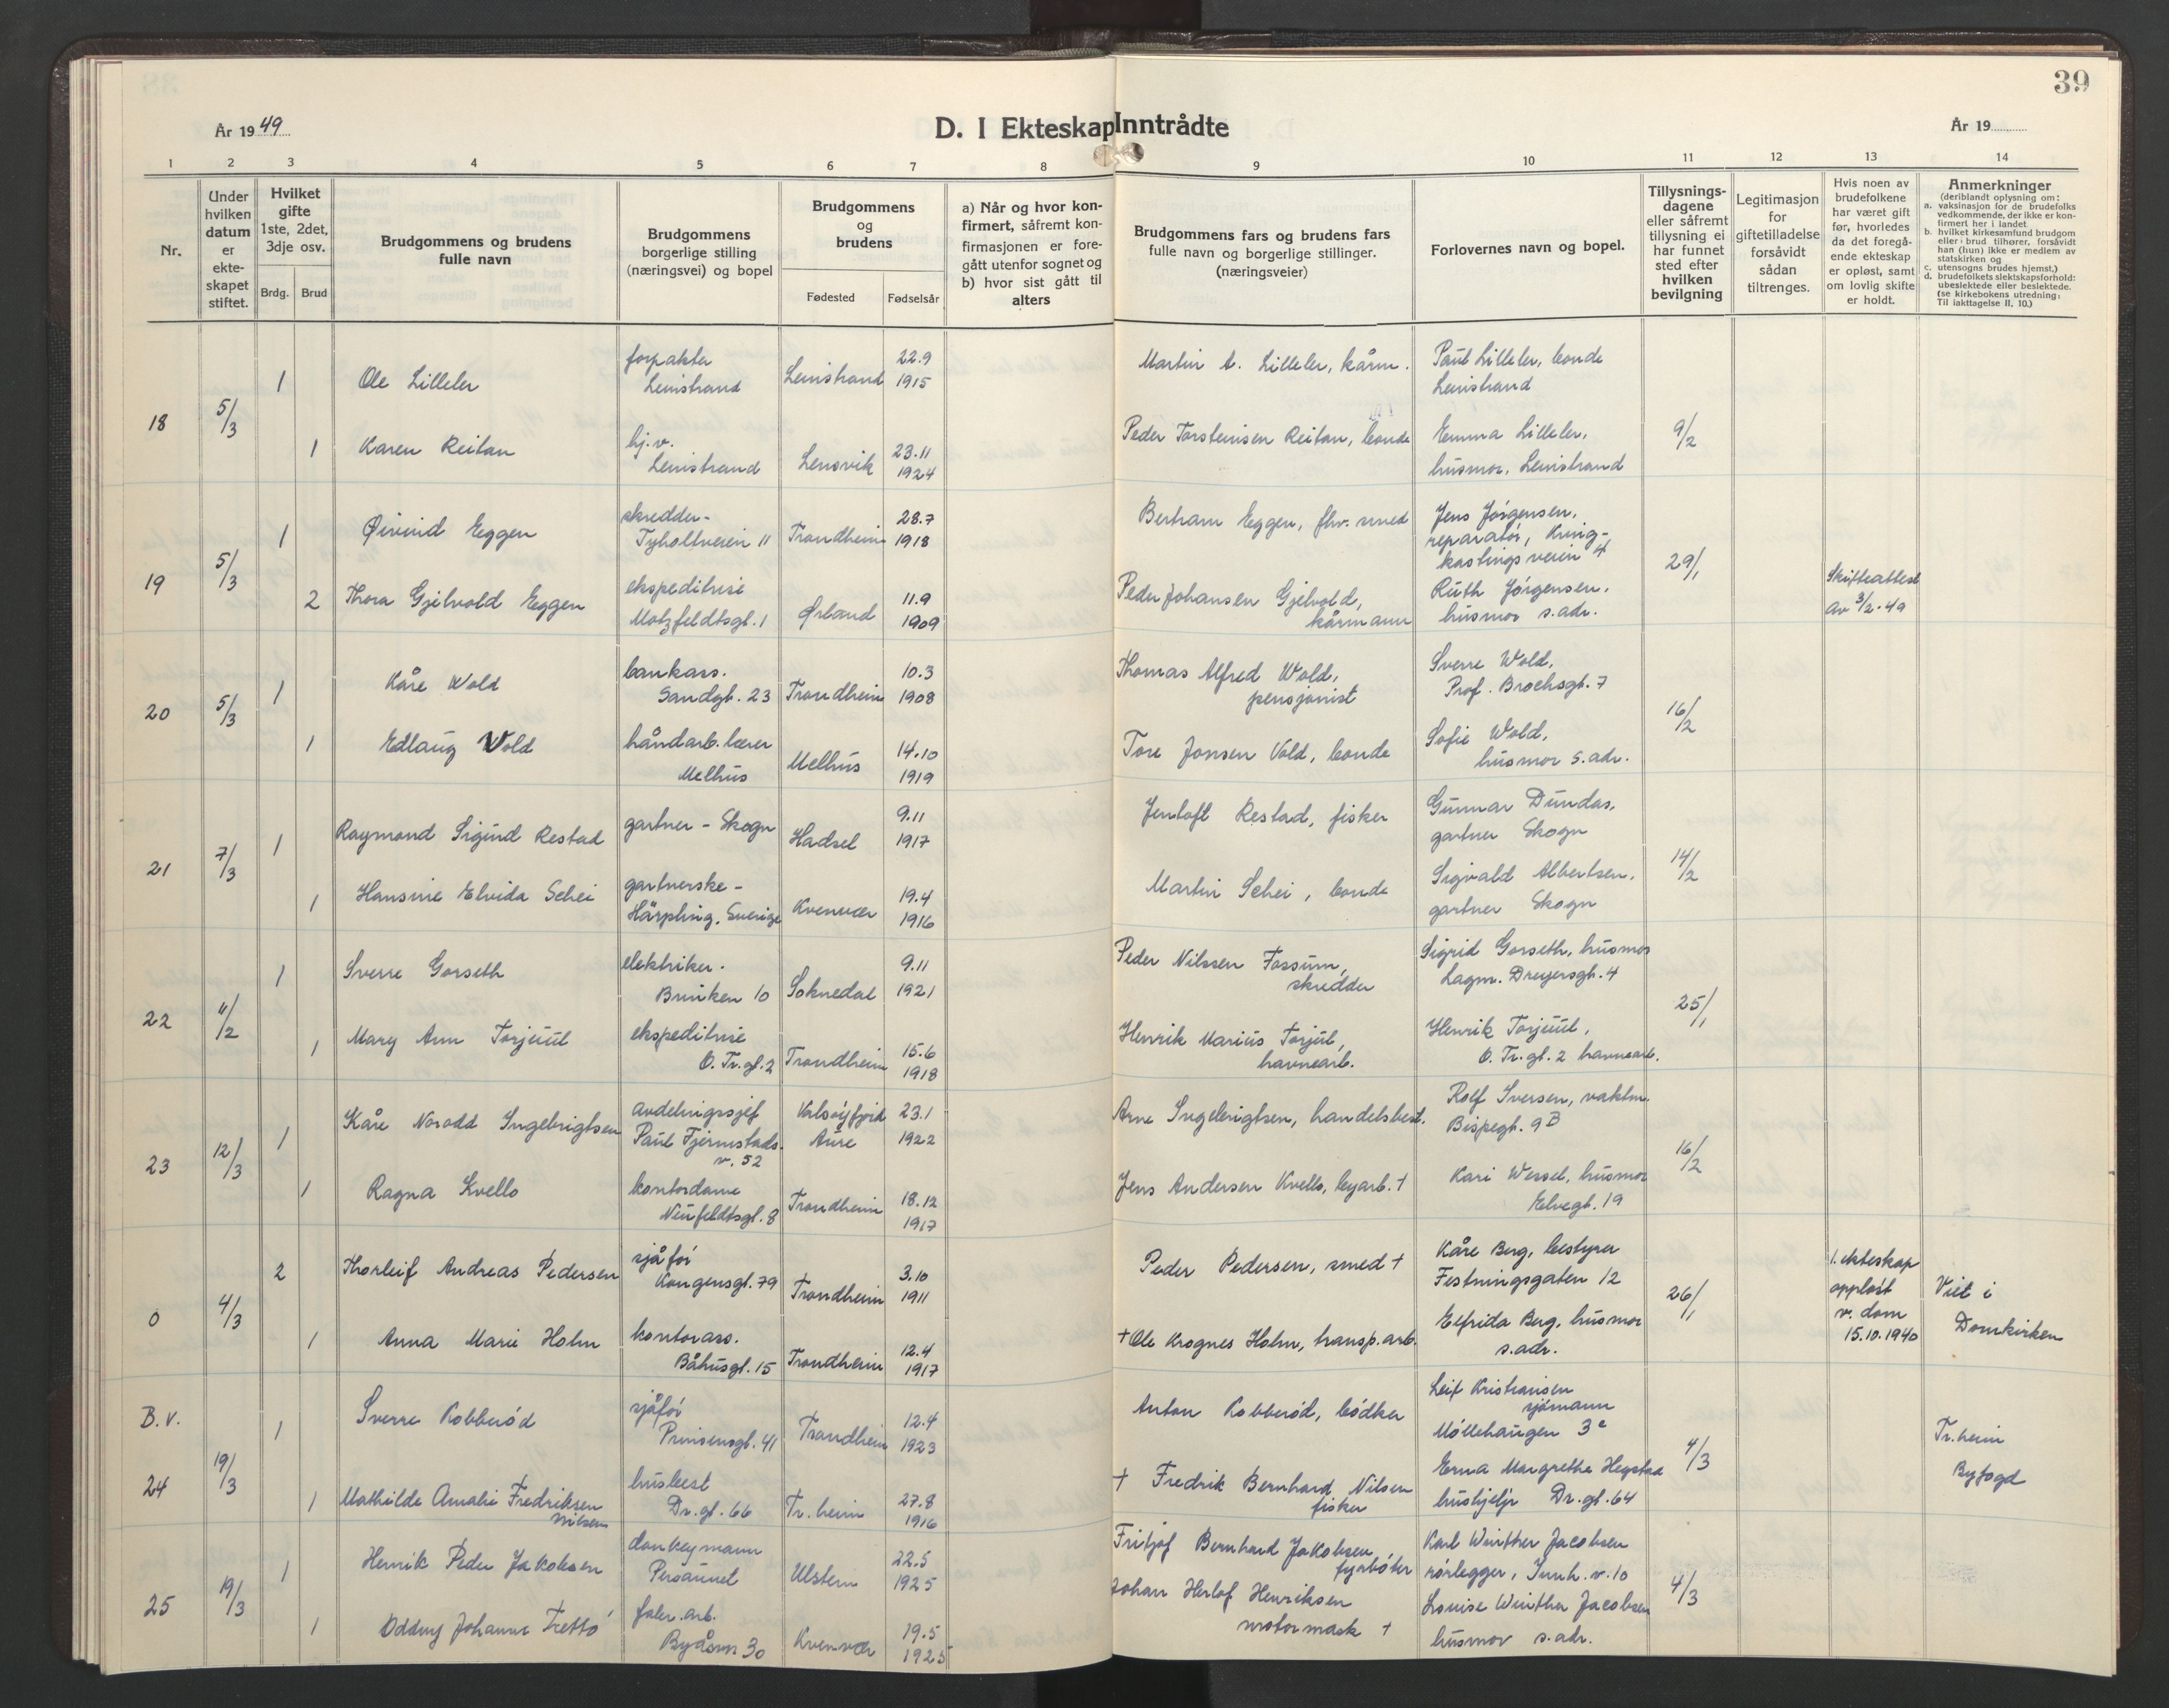 39
År 1949
D. I Ekteskap Inntrådte
År 19
1 2 3 4 5 6 7 8 9 10 11 12 13 14
Nr.
Under hvilken datum er ekte-skapet stiftet.
Hvilket gifte 1ste, 2det, 3dje osv.
Brdg. Brud
Brudgommens og brudens fulle navn
Brudgommens borgerlige stilling (næringsvei) og bopel
Brudgommens og brudens
Fødested Fødselsår
a) Når og hvor kon-firmert, såfremt kon-firmasjonen er fore-gått utenfor sognet og b) hvor sist gått til alters
Brudgommens fars og brudens fars fulle navn og borgerlige stillinger. (næringsveier)
Forlovernes navn og bopel.
Tillysnings-dagene eller såfremt tillysning ei har funnet sted efter hvilken bevilgning
Legitimasjon for giftetilladelse forsåvidt sådan tiltrenges.
Hvis noen av brudefolkene har været gift før, hvorledes da det foregå-ende ekteskap er opløst, samt om lovlig skifte er holdt.
Anmerkninger
(deriblandt oplysning om:
a. vaksinasjon for de brudefolks vedkommende, der ikke er kon-firmert her i landet.
b. hvilket kirkesamfund brudgom eller i brud tilhører, forsåvidt han (hun) ikke er medlem av statskirken og
c. utensogns brudes hjemst.)
d. brudefolkets slektskapsforhold: ubeslektede eller beslektede.
(se kirkebokens utredning: Til iakttagelse II, 10.)
18 5/3
1 Ole Lilleler forpakter Leinstrand Leinstrand 22.9 1915 Martin A. Lilleler, kårm. Paul Lilleler, bonde Leinstrand
1 Karen Reitan hj.v. Leinstrand Lensvik 23.11 1924 Peder Torsteinsen Reitan, bonde Emma Lilleler, husmor, Leinstrand 9/2
19 5/3
1 Øivind Eggen skredder - Tyholtveien 11 Trondheim 28.7 1918 Bertram Eggen, fhv. smed Jens Jørgensen, reparatør, Kringkastingsveien 4
2 Thora Gjelvold Eggen ekspeditrise Motzfeldtsgt. 1 Ørland 11.9 1909 Peder Johansen Gjelvold, kårmann Ruth Jørgensen, husmor s.adr. 29/1 Skifteattest av 3/2-49
20 5/3
1 Kåre Wold bankass. Sandgt. 23 Trondheim 10.3 1908 Thomas Alfred Wold, pensjonist Sverre Wold, Prof. Brochsgt. 7
1 Edlaug Vold håndarb.lærer Melhus Melhus 14.10 1919 Tore Jonsen Vold, bonde Sofie Wold, husmor s.adr. 16/2
21 7/3
1 Raymond Sigurd Restad gartner - Skogn Hadsel 9.11 1917 Jentoft Restad, fisker Gunnar Dundas, gartner Skogn
1 Hansine Elvida Schei gartnerske - Härpling, Sverige Kvenvær 19.4 1916 Martin Schei, bonde Sigvald Albertsen, gartner Skogn 14/2
22 11/2
1 Sverre Gorseth elektriker. Brinken 10 Soknedal 9.11 1921 Peder Nilssen Fossum, skredder Sigrid Gorseth, husmor Lagm. Dreyersgt. 4
1 Mary Ann Torjuul ekspeditrise O. Tr. gt. 2 Trondheim 15.6 1918 Henrik Marius Torjul, havnearb. Henrik Torjuul, O. Tr. gt. 2 havnearb. 25/1
23 12/3
1 Kåre Norodd Ingebrigtsen avdelingssjef Paul Fjermstads v. 52 Valsøyfjord Aure 23.1 1922 Arne Ingebrigtsen, handelsbest. Rolf Iversen, vaktm. Bispegt. 9B
1 Ragna Kvello kontordame Neufeldtsgt. 8 Trondheim 18.12 1917 Jens Andersen Kvello, byarb. † Kari Wessel, husmor Elvegt. 19 16/2
0 4/3
2 Thorleif Andreas Pedersen sjåfør Kongensgt. 79 Trondheim 3.10 1911 Peder Pedersen, smed † Kåre Berg, bestyrer Festningsgaten 12
1 Anna Marie Holm kontorass. Båhusgt. 15 Trondheim 12.4 1917 † Ole Krognes Holm, transp.arb. Elfrida Berg, husmor s.adr. 26/1 1. ekteskap oppløst v. dom 15.10.1940 Viet i Domkirken
B.V.
24 19/3
1 Sverre Kobberød sjåfør Prinsensgt. 41 Trondheim 12.4 1923 Anton Kobberød, bødker Leif Kristiansen sjømann Møllehaugen 3c
1 Mathilde Amalie Fredriksen Nilsen husbest Dr. gt. 66 Tr.heim 27.8 1916 † Fredrik Bernhard Nilsen fisker Erna Margrethe Hegstad hushjelp Dr. gt. 64 4/3 Tr.heim Byfogd
25 19/3
1 Henrik Peder Jakobsen donkeymann Persaunet Ulstein 22.5 1925 Fritjof Bernhard Jakobsen, fyrbøter Karl Winther Jacobsen rørlegger, Innh. v. 10
1 Oddny Johanne Trettø fabr. arb. Byåsvn 30 Kvenvær 19.5 1925 Johan Herlof Henriksen motormask † Louise Winther Jacobsen husmor s.adr. 4/3